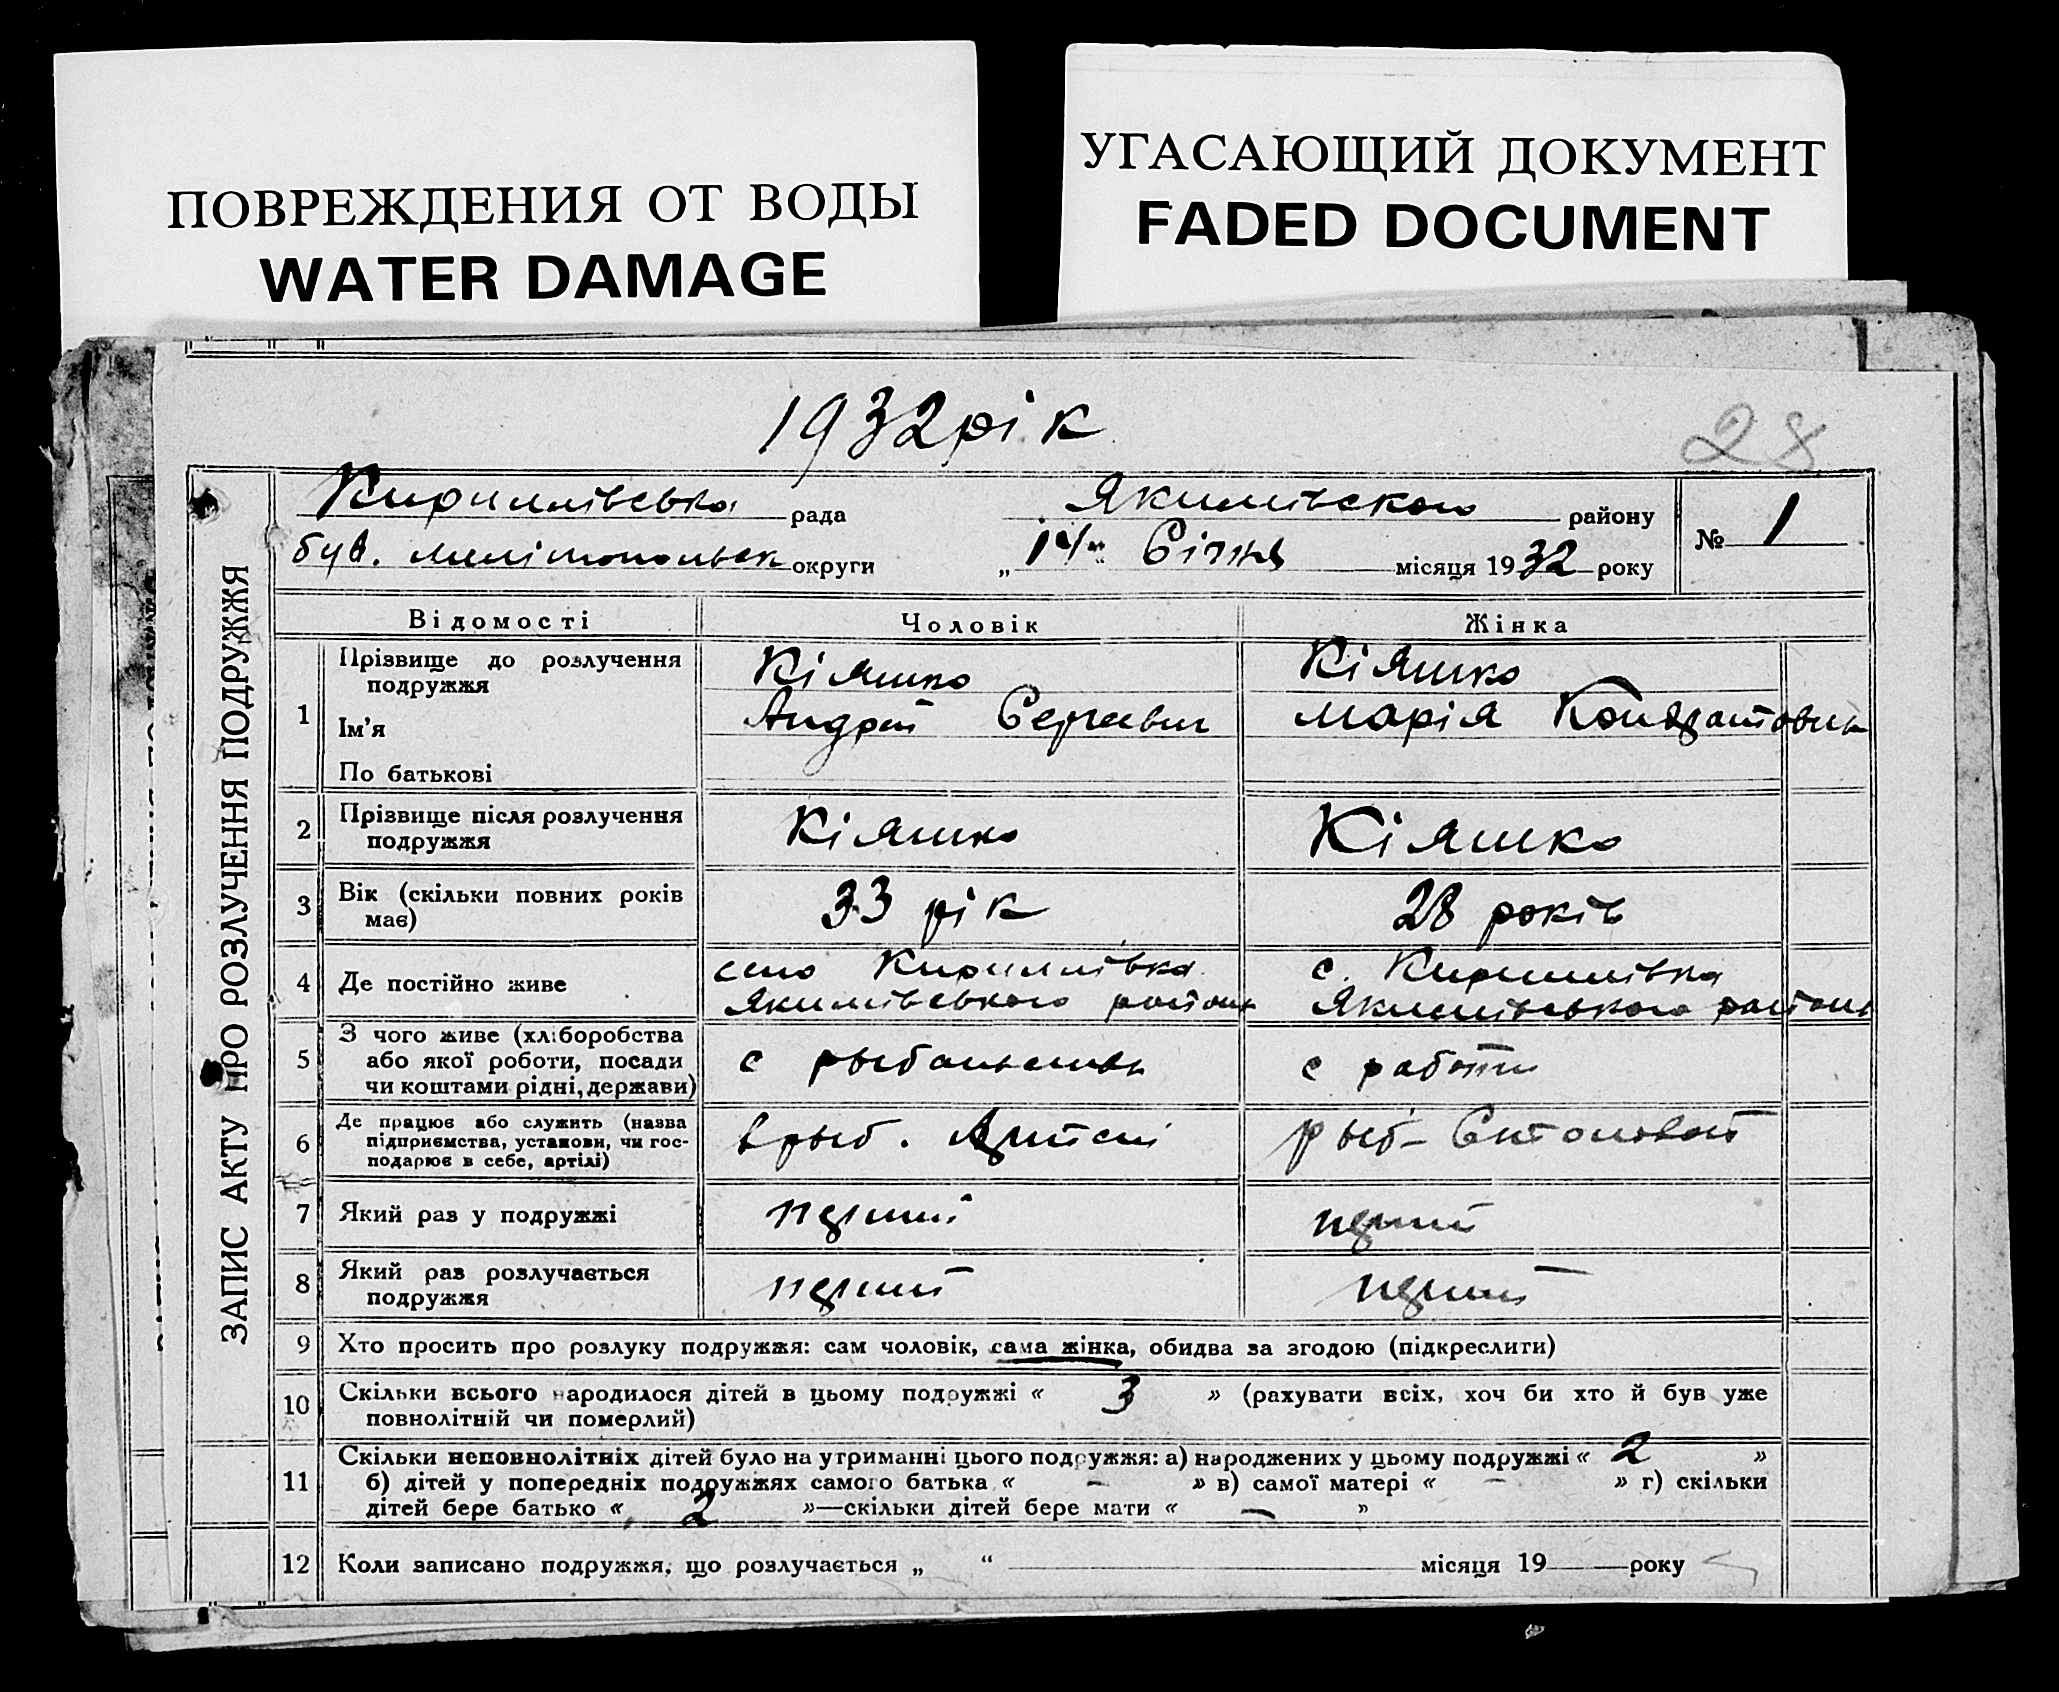 ПОВРЕЖДЕНИЯ ОТ ВОДЫ
WATER DAMAGE
УГАСАЮЩИЙ ДОКУМЕНТ
FADED DOCUMENT
1932 рік
28
ЗАПИС АКТУ ПРО РОЗЛУЧЕННЯ ПОДРУЖЖЯ
Кириллівська рада Якимівского району № 1
був. Мелітопольськ округи „1“ Січня місяця 1932 року
Відомості Чоловік Жінка
1 Прізвище до розлучення подружжя Кіяшко Кіяшко
Ім'я Андрей Сергеевич Марія Кондратовна
По батькові
2 Прізвище після розлучення подружжя Кіяшко Кіяшко
3 Вік (скільки повних років має) 33 рік 28 років
4 Де постійно живе село Кириллівка Якимівського района с. Кириллівка Якимівського района
5 З чого живе (хліборобства або якої роботи, посади чи коштами рідні, держави) с с работи
6 Де працює або служить (назва підприємства, установи, чи господарює в себе, артілі) в рыб. Артелі рыб-
7 Який раз у подружжі перший перший
8 Який раз розлучається подружжя перший перший
9 Хто просить про розлуку подружжя: сам чоловік, сама жінка, обидва за згодою (підкреслити)
10 Скільки всього народилося дітей в цьому подружжі « 3 » (рахувати всіх, хоч би хто й був уже
повнолітній чи померлий)
11 Скільки неповнолітніх дітей було на утриманні цього подружжя: а) народжених у цьому подружжі « 2 »
б) дітей у попередніх подружжях самого батька « – » в) самої матері « – » г) скільки
дітей бере батько « 2 »—скільки дітей бере мати « – »
12 Коли записано подружжя, що розлучається „ “ місяця 19 року